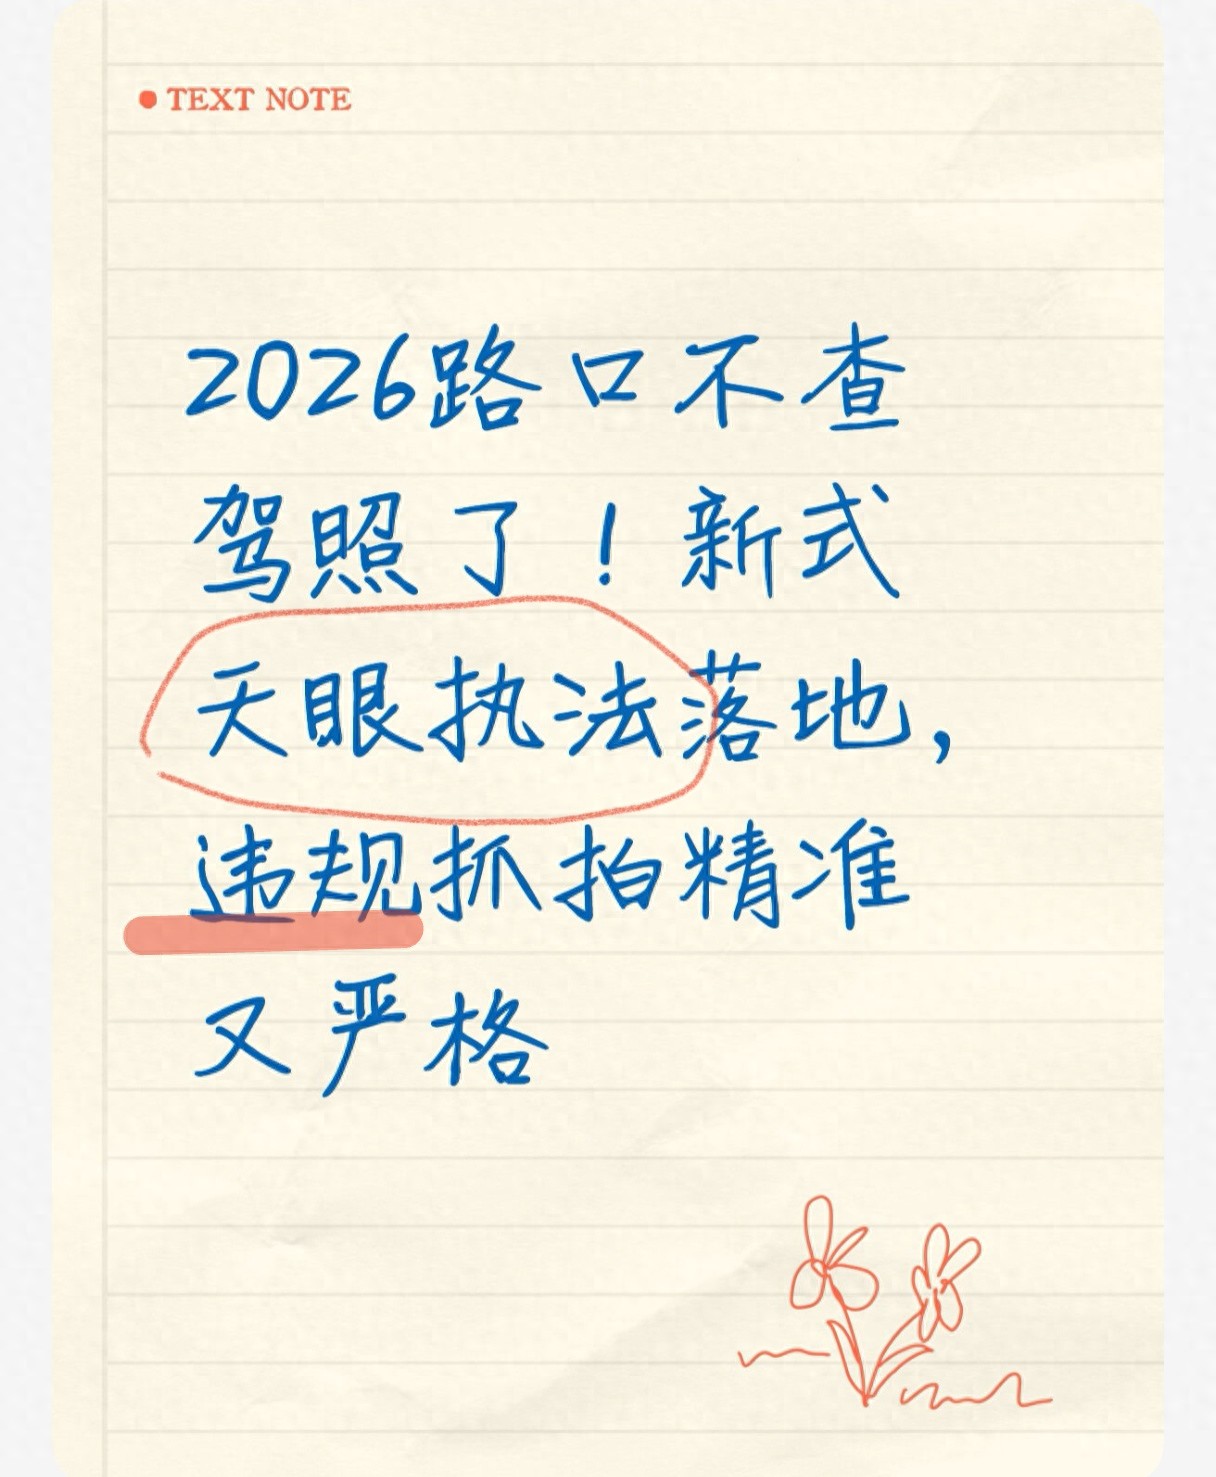 TEXT NOTE
2026路口不查
驾照了！新式
天眼执法落地，
违规抓拍精准
又严格